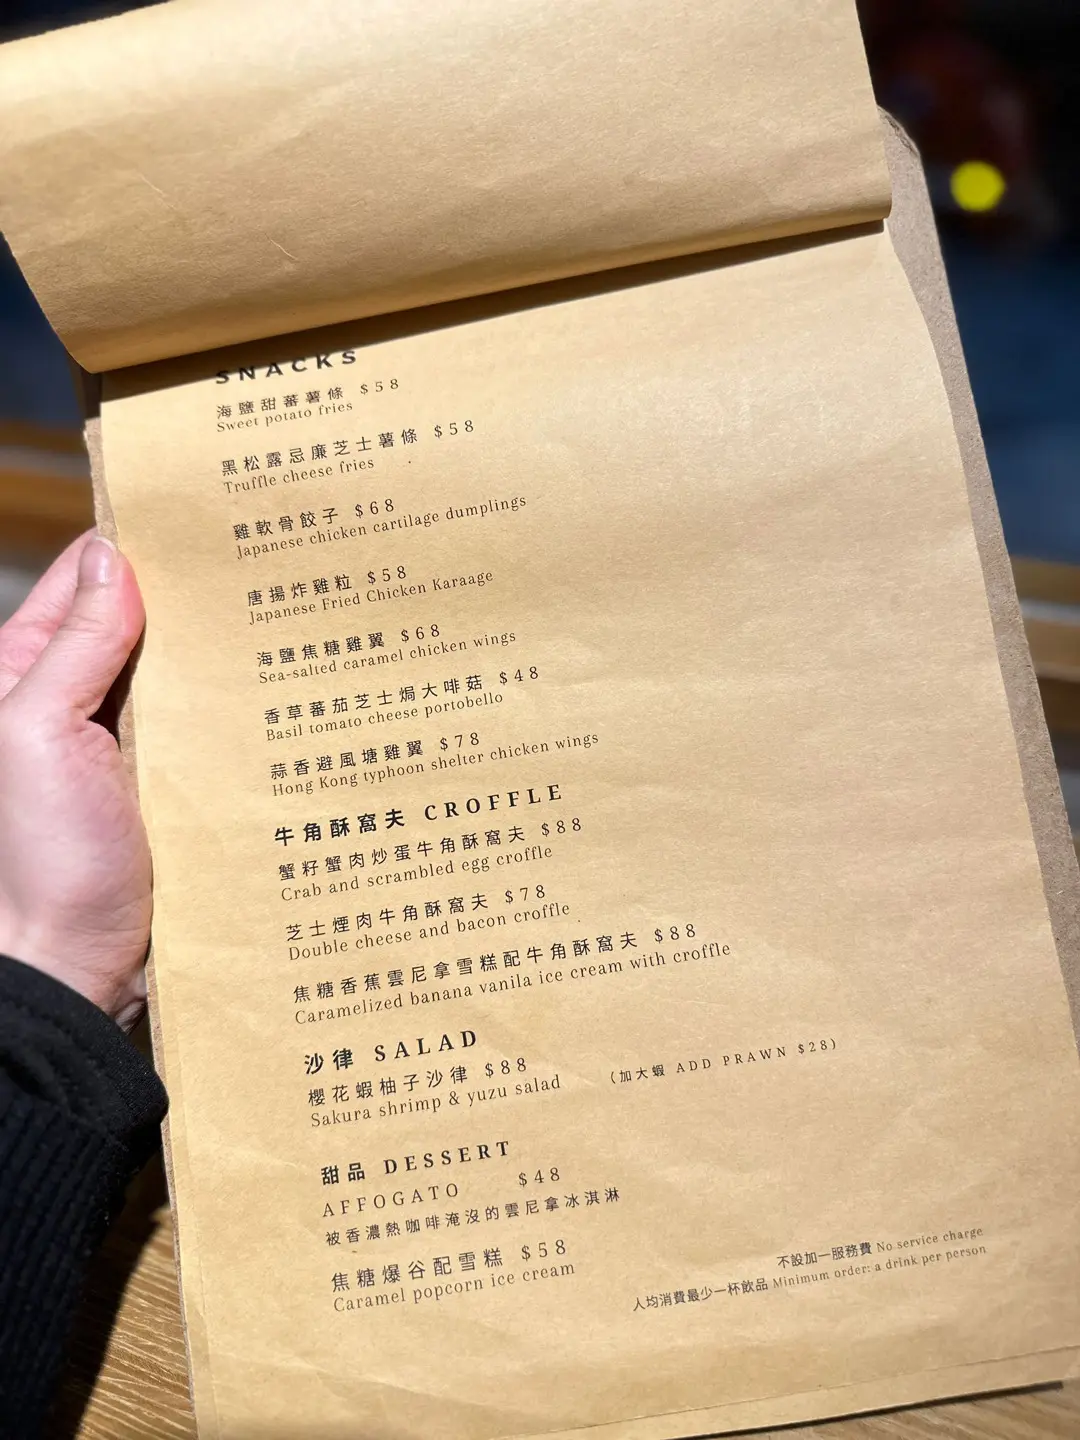 SNACKS
海鹽甜蕃薯條 $58
Sweet potato fries
黑松露忌廉芝士薯條 $58
Truffle cheese fries
雞軟骨餃子 $68
Japanese chicken cartilage dumplings
唐揚炸雞粒 $58
Japanese Fried Chicken Karaage
海鹽焦糖雞翼 $68
Sea-salted caramel chicken wings
香草蕃茄芝士焗大啡菇 $48
Basil tomato cheese portobello
蒜香避風塘雞翼 $78
Hong Kong typhoon shelter chicken wings
牛角酥窩夫 CROFFLE
蟹籽蟹肉炒蛋牛角酥窩夫 $88
Crab and scrambled egg croffle
芝士煙肉牛角酥窩夫 $78
Double cheese and bacon croffle
焦糖香蕉雲尼拿雪糕配牛角酥窩夫 $88
Caramelized banana vanila ice cream with croffle
沙律 SALAD
櫻花蝦柚子沙律 $88
Sakura shrimp & yuzu salad (加大蝦 ADD PRAWN $28)
甜品 DESSERT
AFFOGATO $48
被香濃熱咖啡淹沒的雲尼拿冰淇淋
焦糖爆谷配雪糕 $58
Caramel popcorn ice cream
不設加一服務費 No service charge
人均消費最少一杯飲品 Minimum order: a drink per person